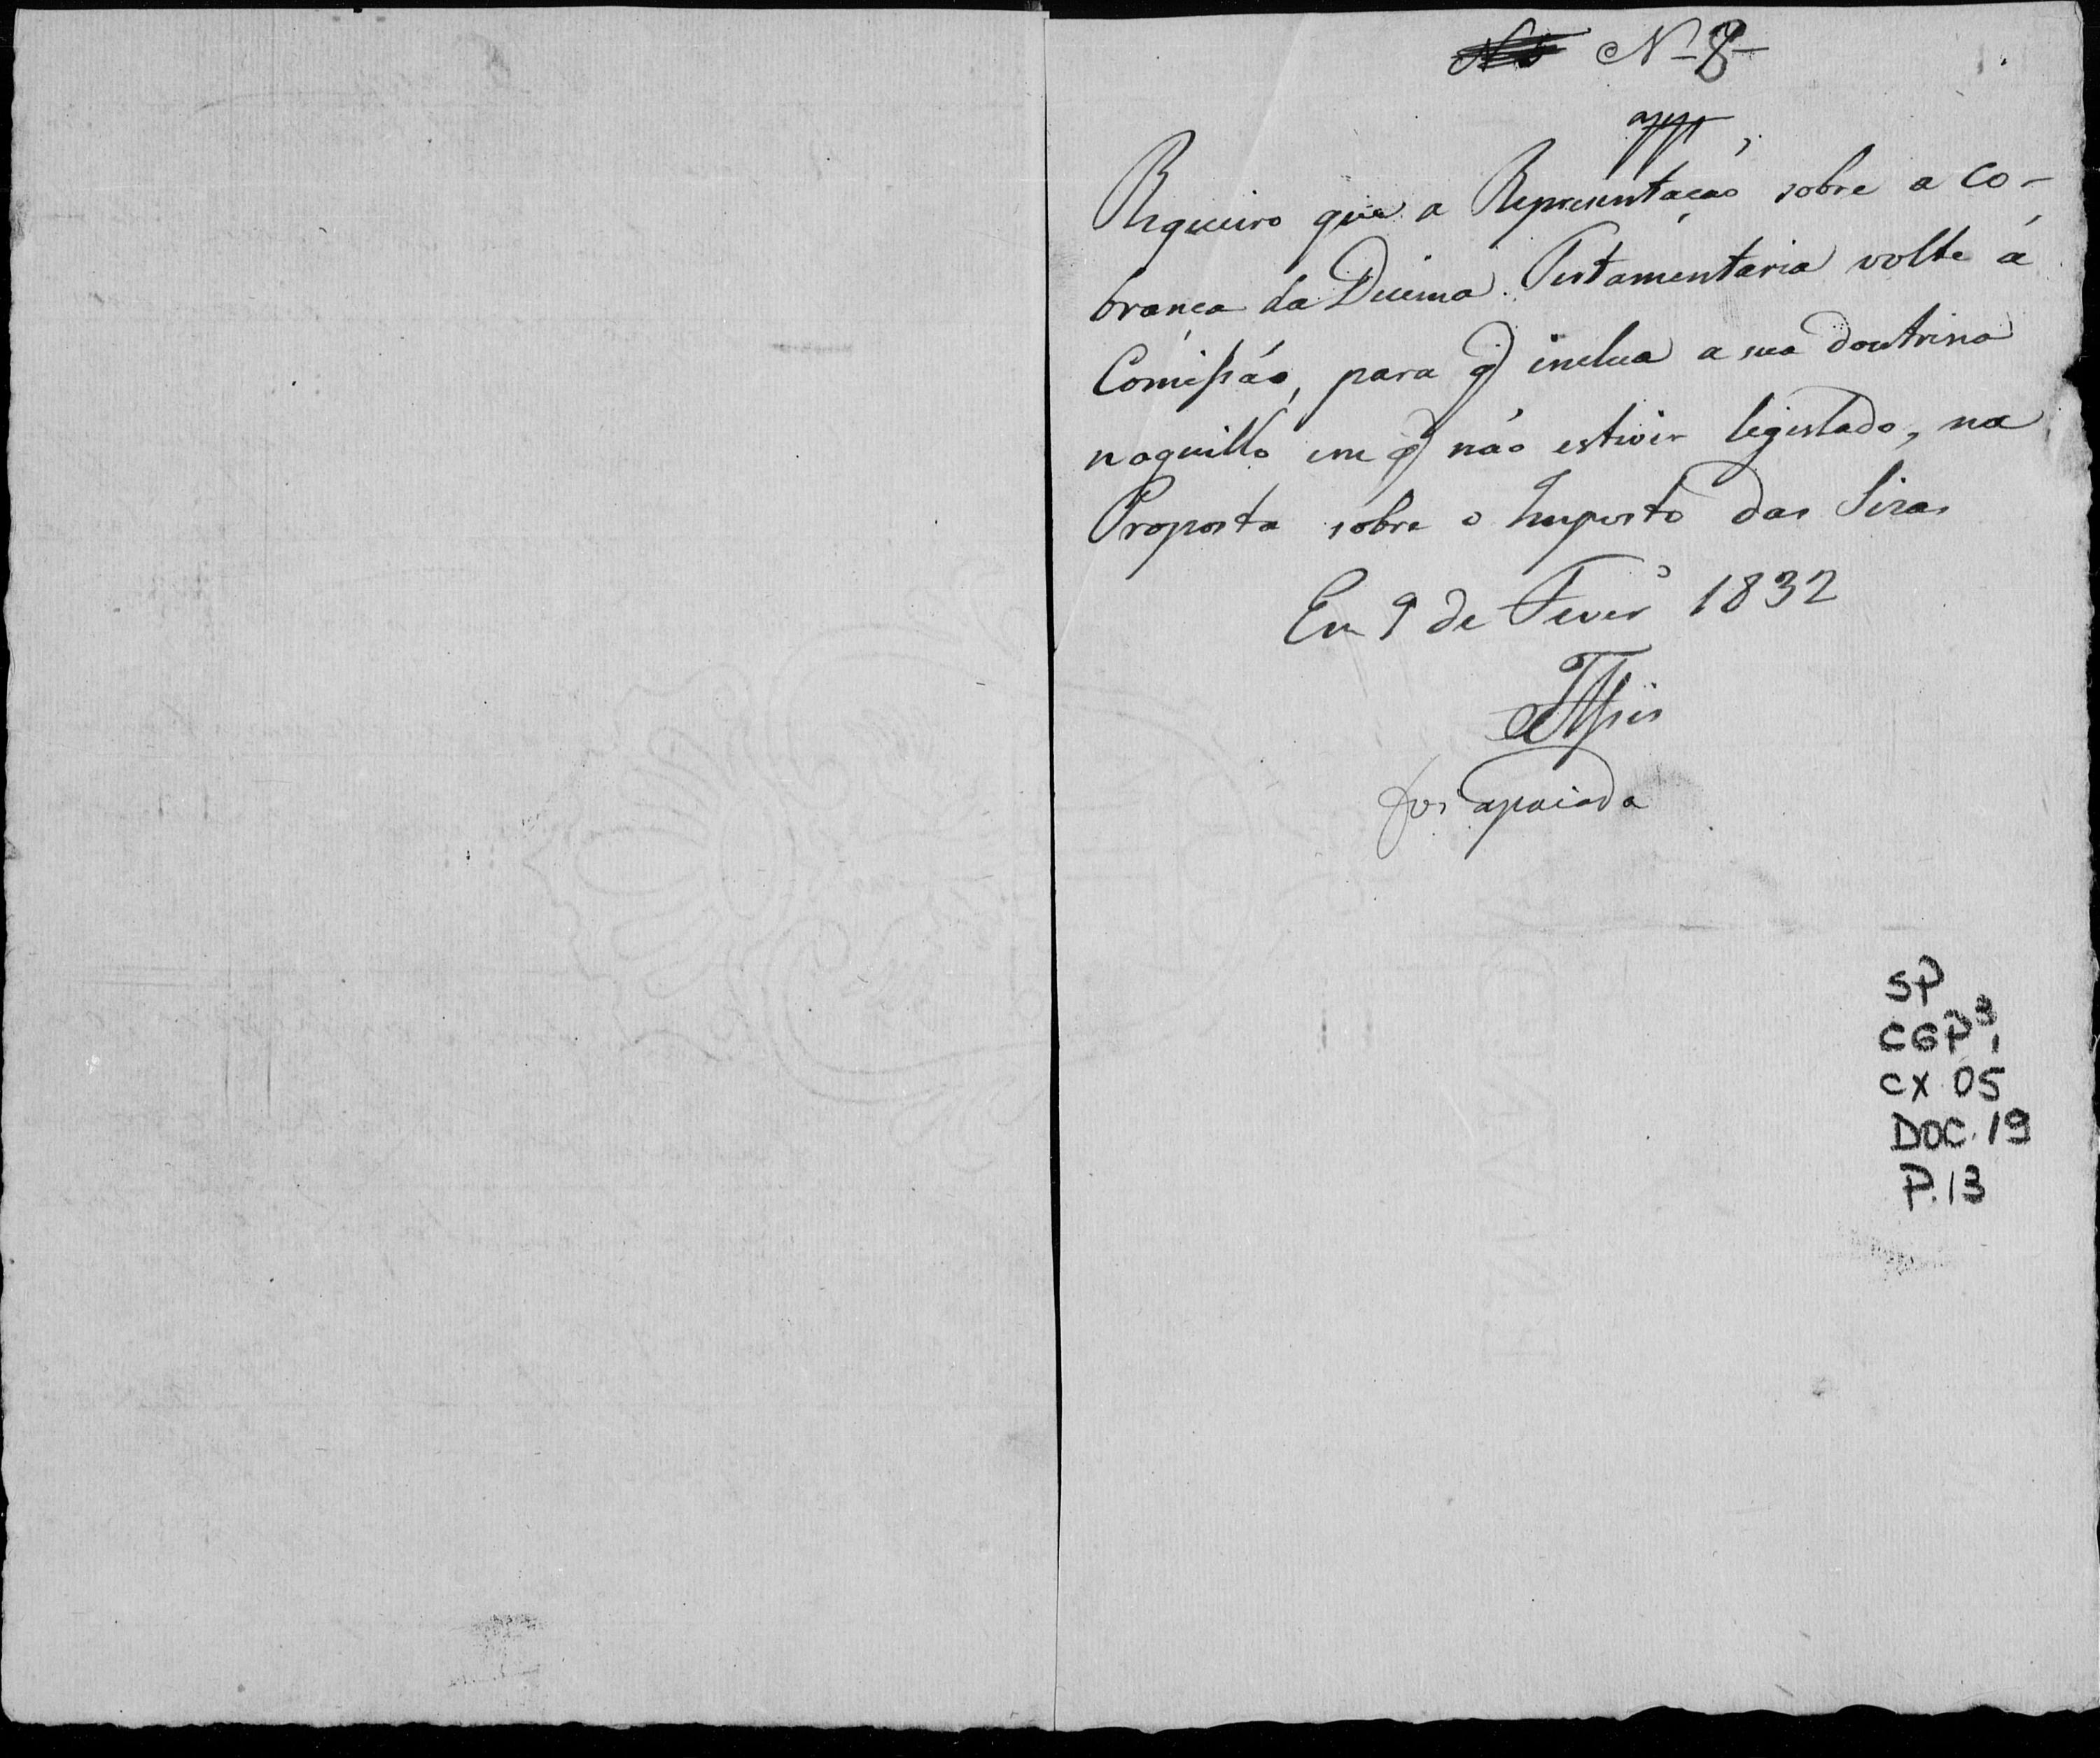 N 8
app
Requeiro que a Representação sobre a co-
brança da Decima Testamentaria volte á
Comissão, para q inclua a sua doutrina
naquillo em q não estiver legislado, na
Proposta sobre o Imposto das Sizas
Em 9 de Fever.º 1832
foi apoiada
SP
CGP 3.1
CX 05
DOC. 19
P. 13